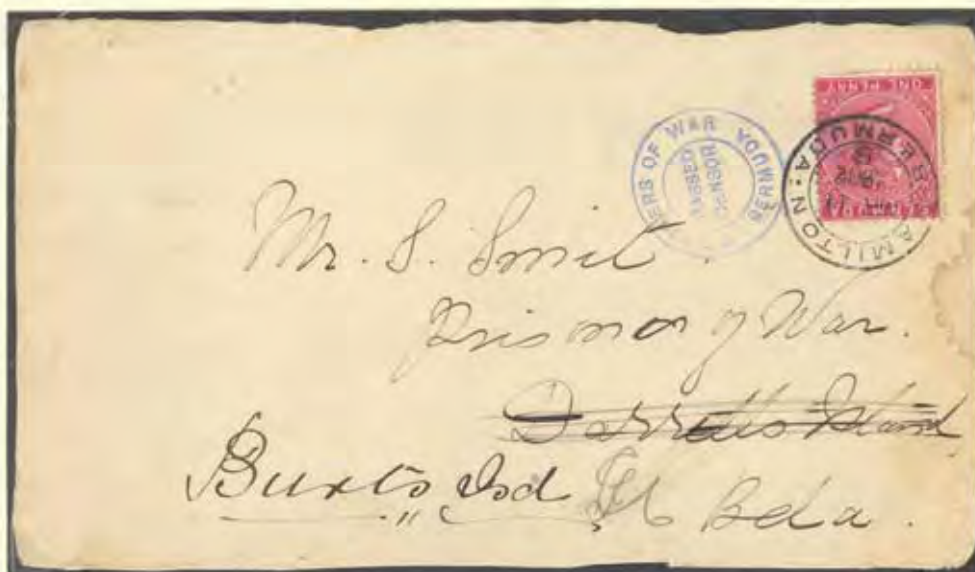 ONE PENNY
BERMUDA
HAMILTON BERMUDA
ERS OF WAR BERMUDA
PASSED
CENSOR
Mr. S. Smit
Prisoner of War.
Darrells Island
Burts Isd
Bda.